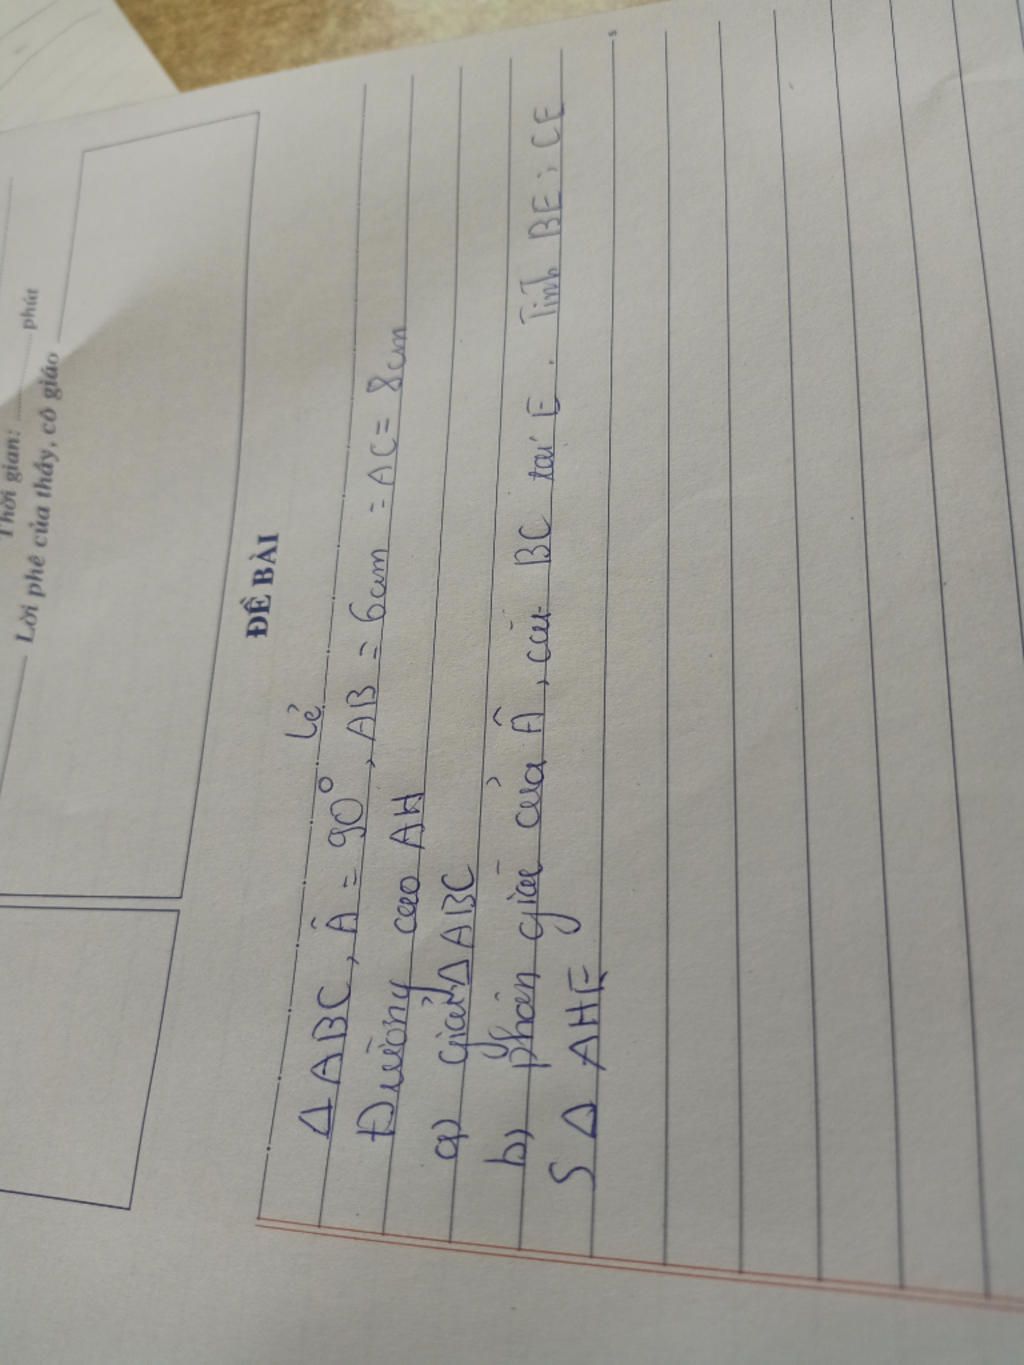 Thời gian: ........... phút
Lời phê của thầy, cô giáo
ĐỀ BÀI
Lẻ
Δ ABC, Â = 90°, AB = 6cm = AC = 8cm
Đường cao AH
a) giải Δ ABC
b) phân giác của Â, cắt BC tại E. Tính BE; CE
S Δ AHE